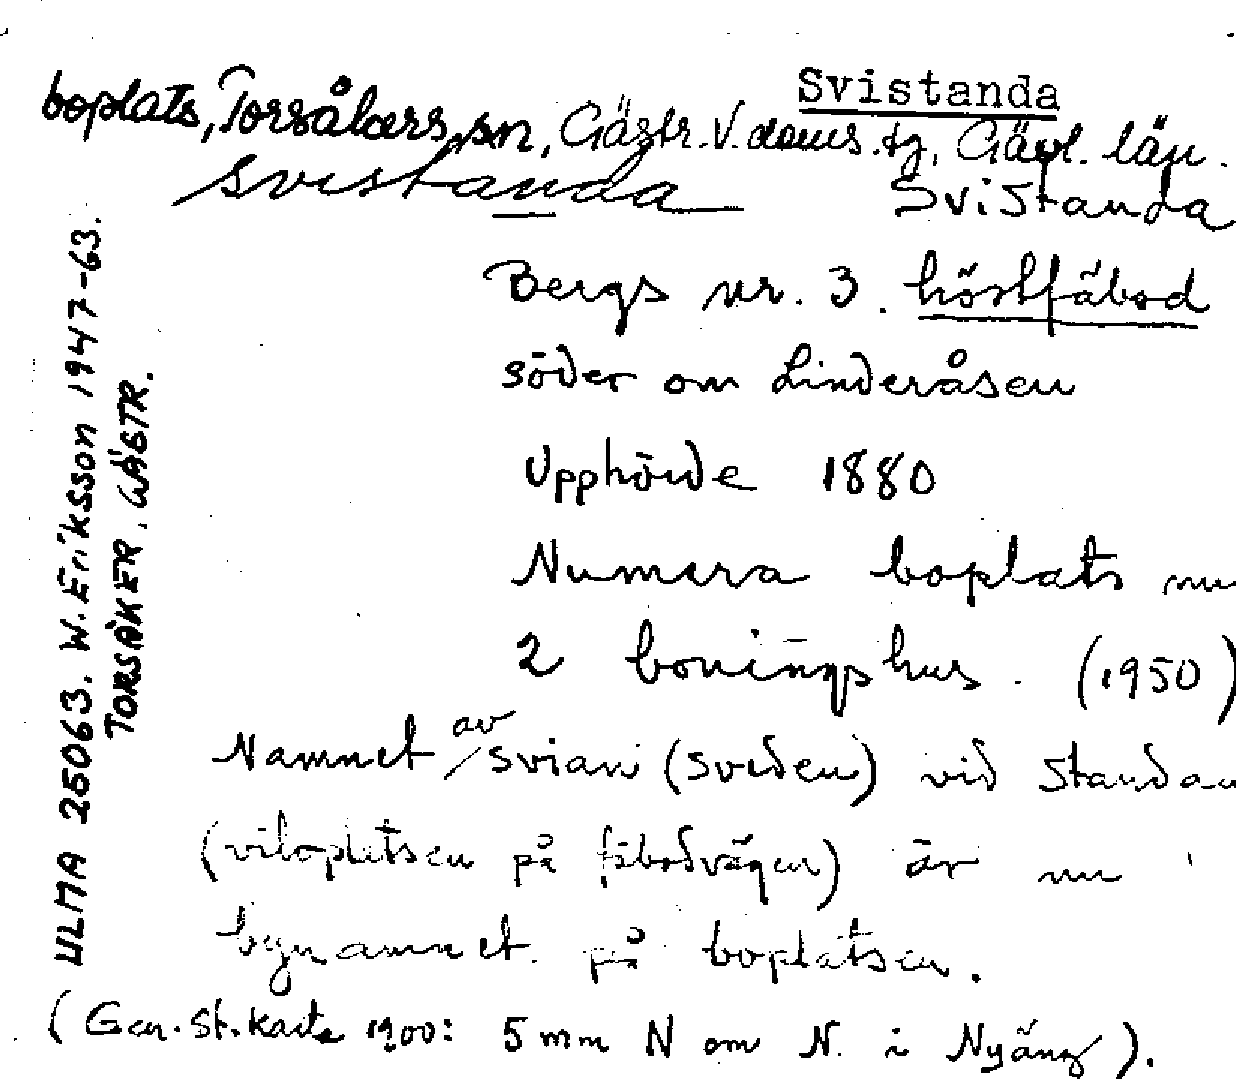 Svistanda
boplats, Torsåkers sn, Gästr. V. doms. tg, Gävl. län.
Svistanda Svistanda
Bergs nr. 3. höstfäbod
söder om Linderåsen
Upphörde 1880
Numera boplats nu
2 boningshus. (1950)
Namnet av svian (sveden) vid standan
(viloplatsen på fäbodvägen) är nu
bynamnet på boplatsen.
(Gen. St. karta 1900: 5 mm N om N. i Nyäng).
ULMA 25063. W. Eriksson 1947-63.
TORSÅKER, GÄSTR.